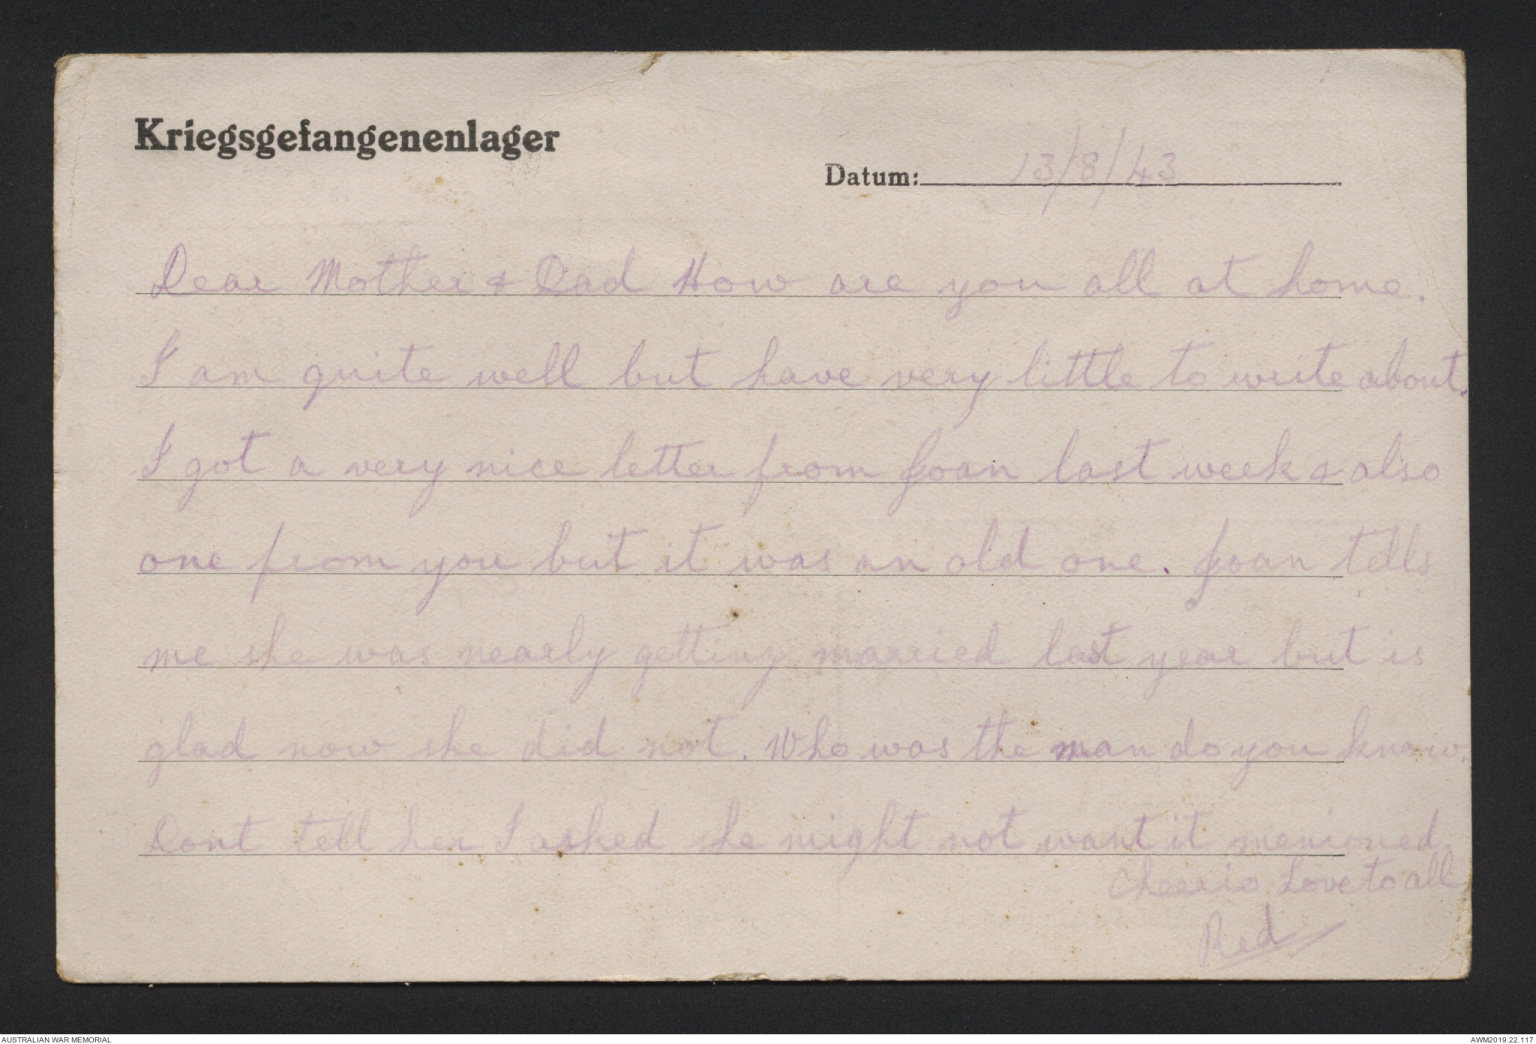 Kriegsgefangenenlager
Datum: 13/8/43
Dear Mother & Dad How are you all at home.
I am quite well but have very little to write about.
I got a very nice letter from Joan last week & also
one from you but it was an old one. Joan tells
me she was nearly getting married last year but is
glad now she did not. Who was the man do you know.
Dont tell her I asked she might not want it menioned.
Cheerio Love to all
Red
AUSTRALIAN WAR MEMORIAL
AWM2019.22.117